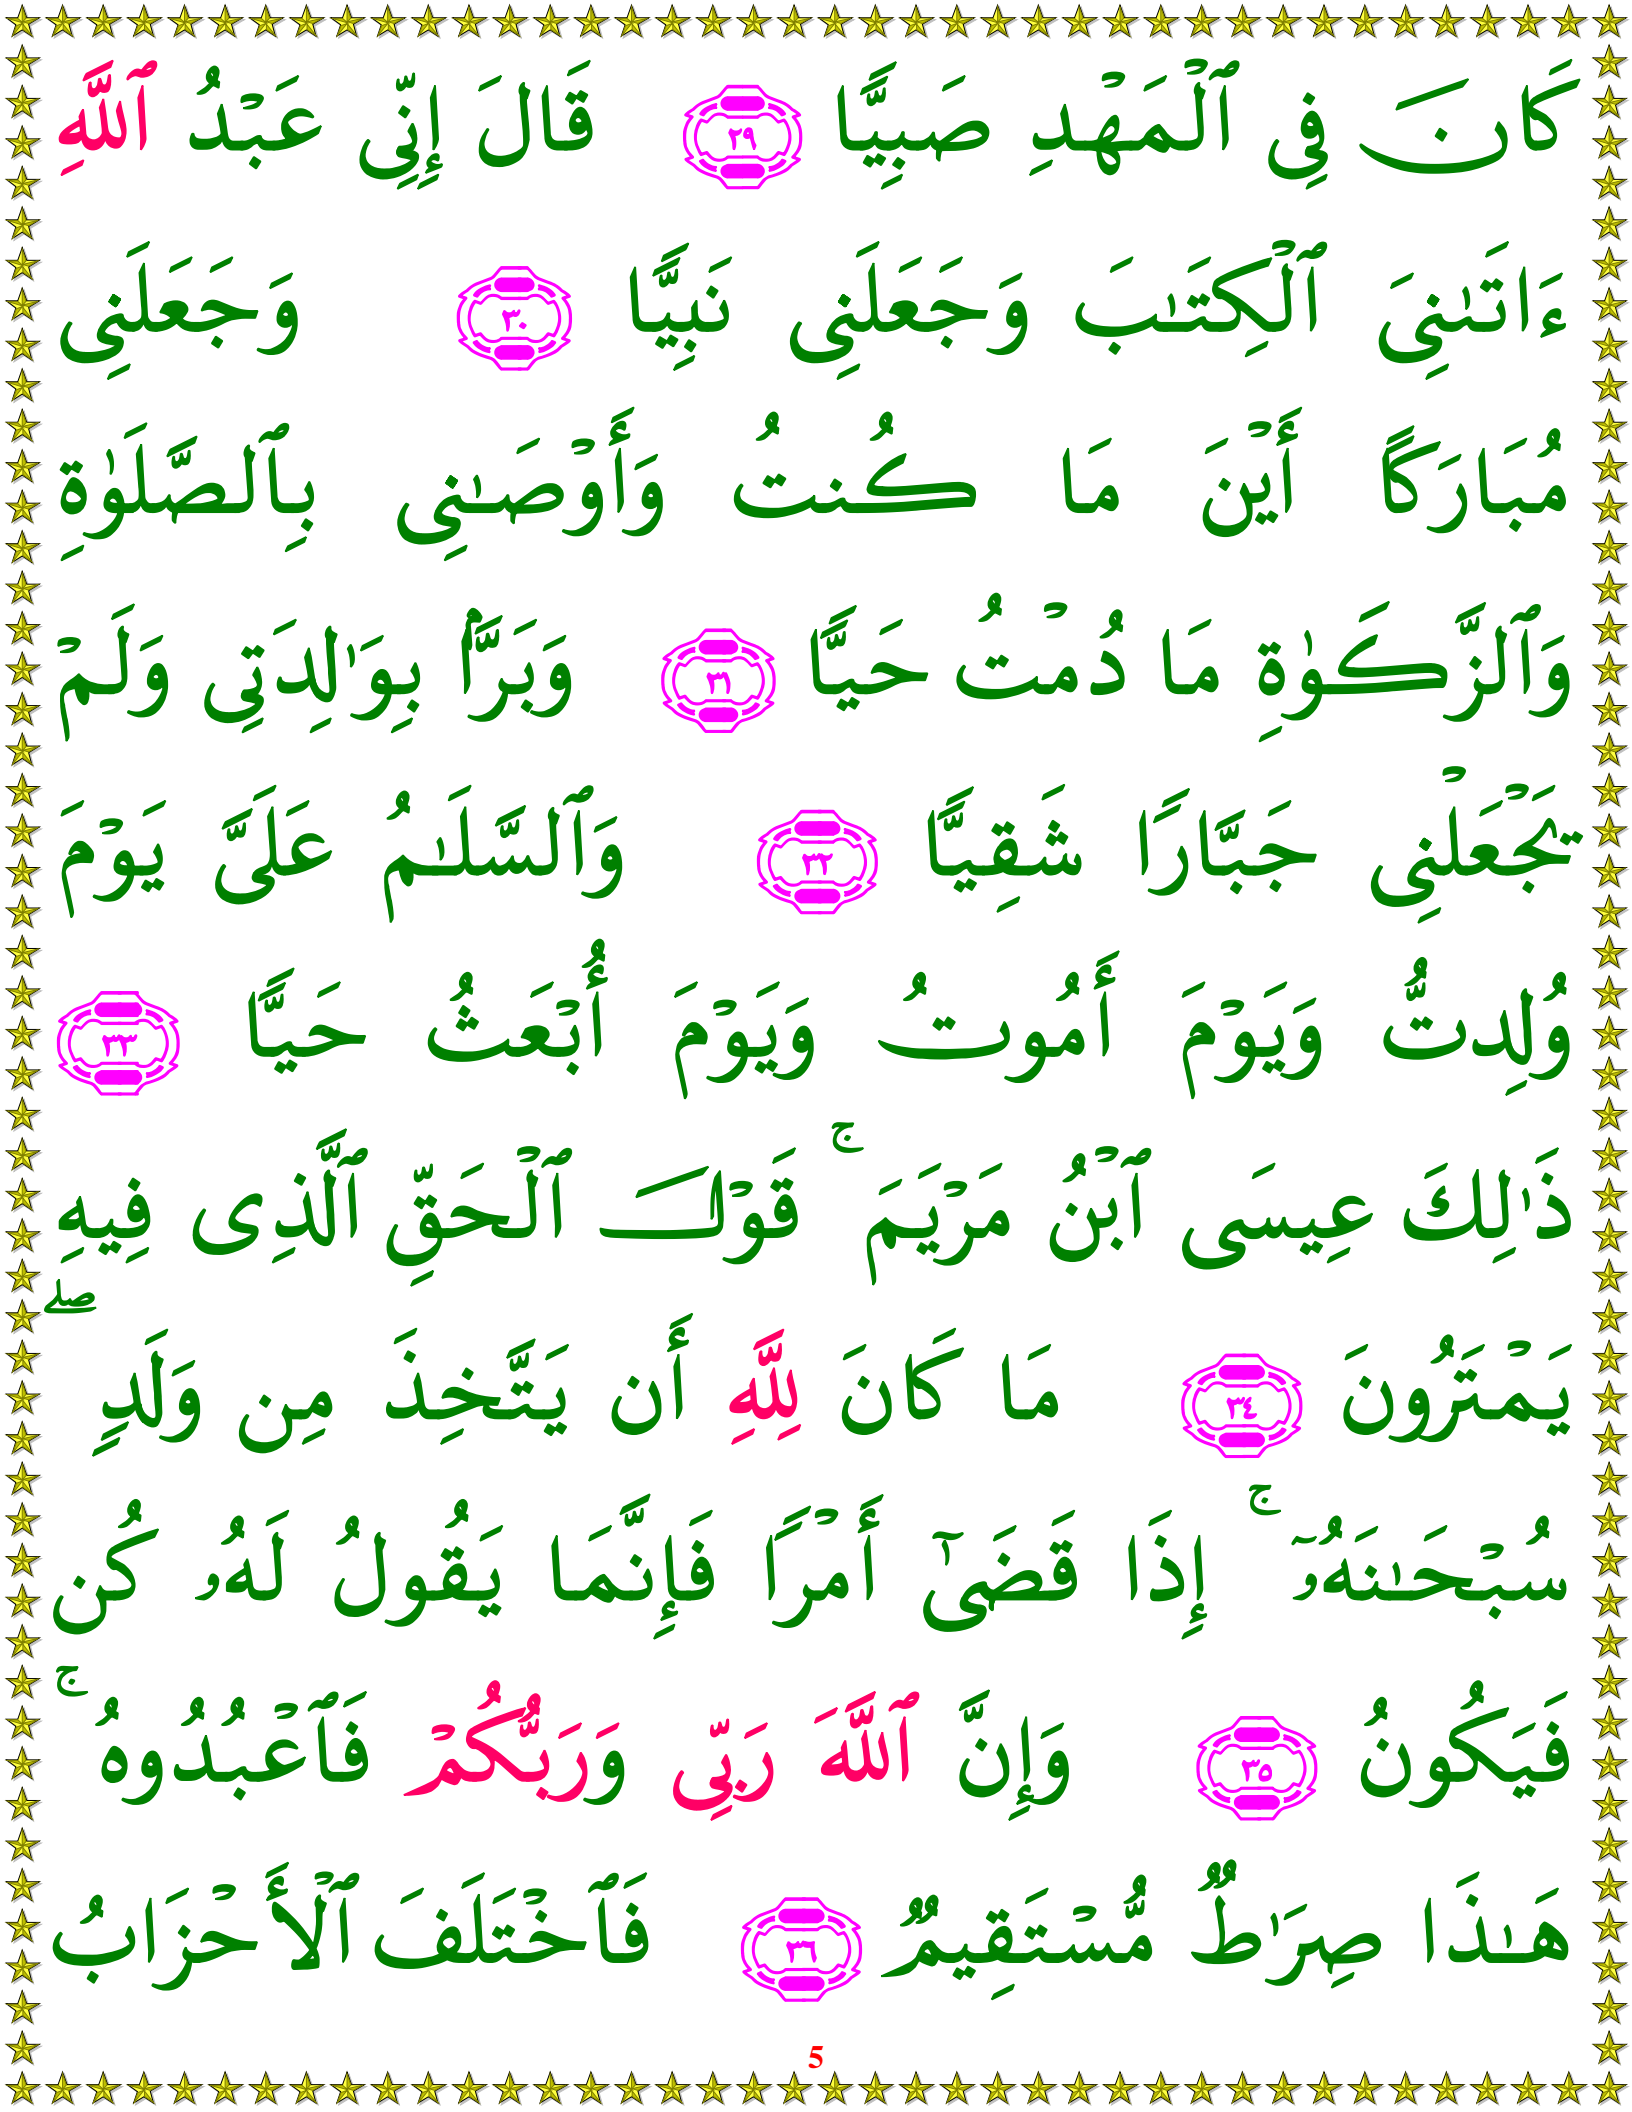 كَانَ فِى ٱلْمَهْدِ صَبِيًّا ٢٩ قَالَ إِنِّى عَبْدُ ٱللَّهِ
ءَاتَىٰنِىَ ٱلْكِتَـٰبَ وَجَعَلَنِى نَبِيًّا ٣٠ وَجَعَلَنِى
مُبَارَكًا أَيْنَ مَا كُنتُ وَأَوْصَـٰنِى بِٱلصَّلَوٰةِ
وَٱلزَّكَوٰةِ مَا دُمْتُ حَيًّا ٣١ وَبَرًّۢا بِوَٰلِدَتِى وَلَمْ
يَجْعَلْنِى جَبَّارًا شَقِيًّا ٣٢ وَٱلسَّلَـٰمُ عَلَىَّ يَوْمَ
وُلِدتُّ وَيَوْمَ أَمُوتُ وَيَوْمَ أُبْعَثُ حَيًّا ٣٣
ذَٰلِكَ عِيسَى ٱبْنُ مَرْيَمَ ۚ قَوْلَ ٱلْحَقِّ ٱلَّذِى فِيهِ
يَمْتَرُونَ ٣٤ مَا كَانَ لِلَّهِ أَن يَتَّخِذَ مِن وَلَدٍ ۖ
سُبْحَـٰنَهُۥٓ ۚ إِذَا قَضَىٰٓ أَمْرًا فَإِنَّمَا يَقُولُ لَهُۥ كُن
فَيَكُونُ ٣٥ وَإِنَّ ٱللَّهَ رَبِّى وَرَبُّكُمْ فَٱعْبُدُوهُ ۚ
هَـٰذَا صِرَٰطٌ مُّسْتَقِيمٌ ٣٦ فَٱخْتَلَفَ ٱلْأَحْزَابُ
5